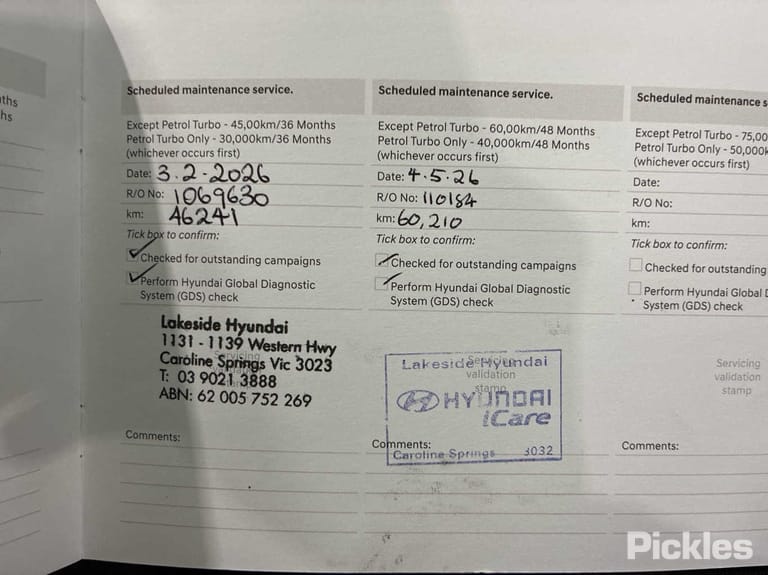 ths
hs
Scheduled maintenance service.
Except Petrol Turbo - 45,00km/36 Months
Petrol Turbo Only - 30,000km/36 Months
(whichever occurs first)
Date: 3.2-2026
R/O No: 1069630
km: 46241
Tick box to confirm:
Checked for outstanding campaigns
Perform Hyundai Global Diagnostic
System (GDS) check
Lakeside Hyundai
1131 - 1139 Western Hwy
Caroline Springs Vic 3023
T: 03 9021 3888
ABN: 62 005 752 269
Servicing
Comments:
Scheduled maintenance service.
Except Petrol Turbo - 60,00km/48 Months
Petrol Turbo Only - 40,000km/48 Months
(whichever occurs first)
Date: 4.5.26
R/O No: 110184
km: 60,210
Tick box to confirm:
Checked for outstanding campaigns
Perform Hyundai Global Diagnostic
System (GDS) check
Lakeside Hyundai
Servicing
validation
stamp
HYUNDAI
iCare
Caroline Springs 3032
Comments:
Scheduled maintenance s
Except Petrol Turbo - 75,00
Petrol Turbo Only - 50,000k
(whichever occurs first)
Date:
R/O No:
km:
Tick box to confirm:
Checked for outstanding
Perform Hyundai Global D
System (GDS) check
Servicing
validation
stamp
Comments:
Pickles